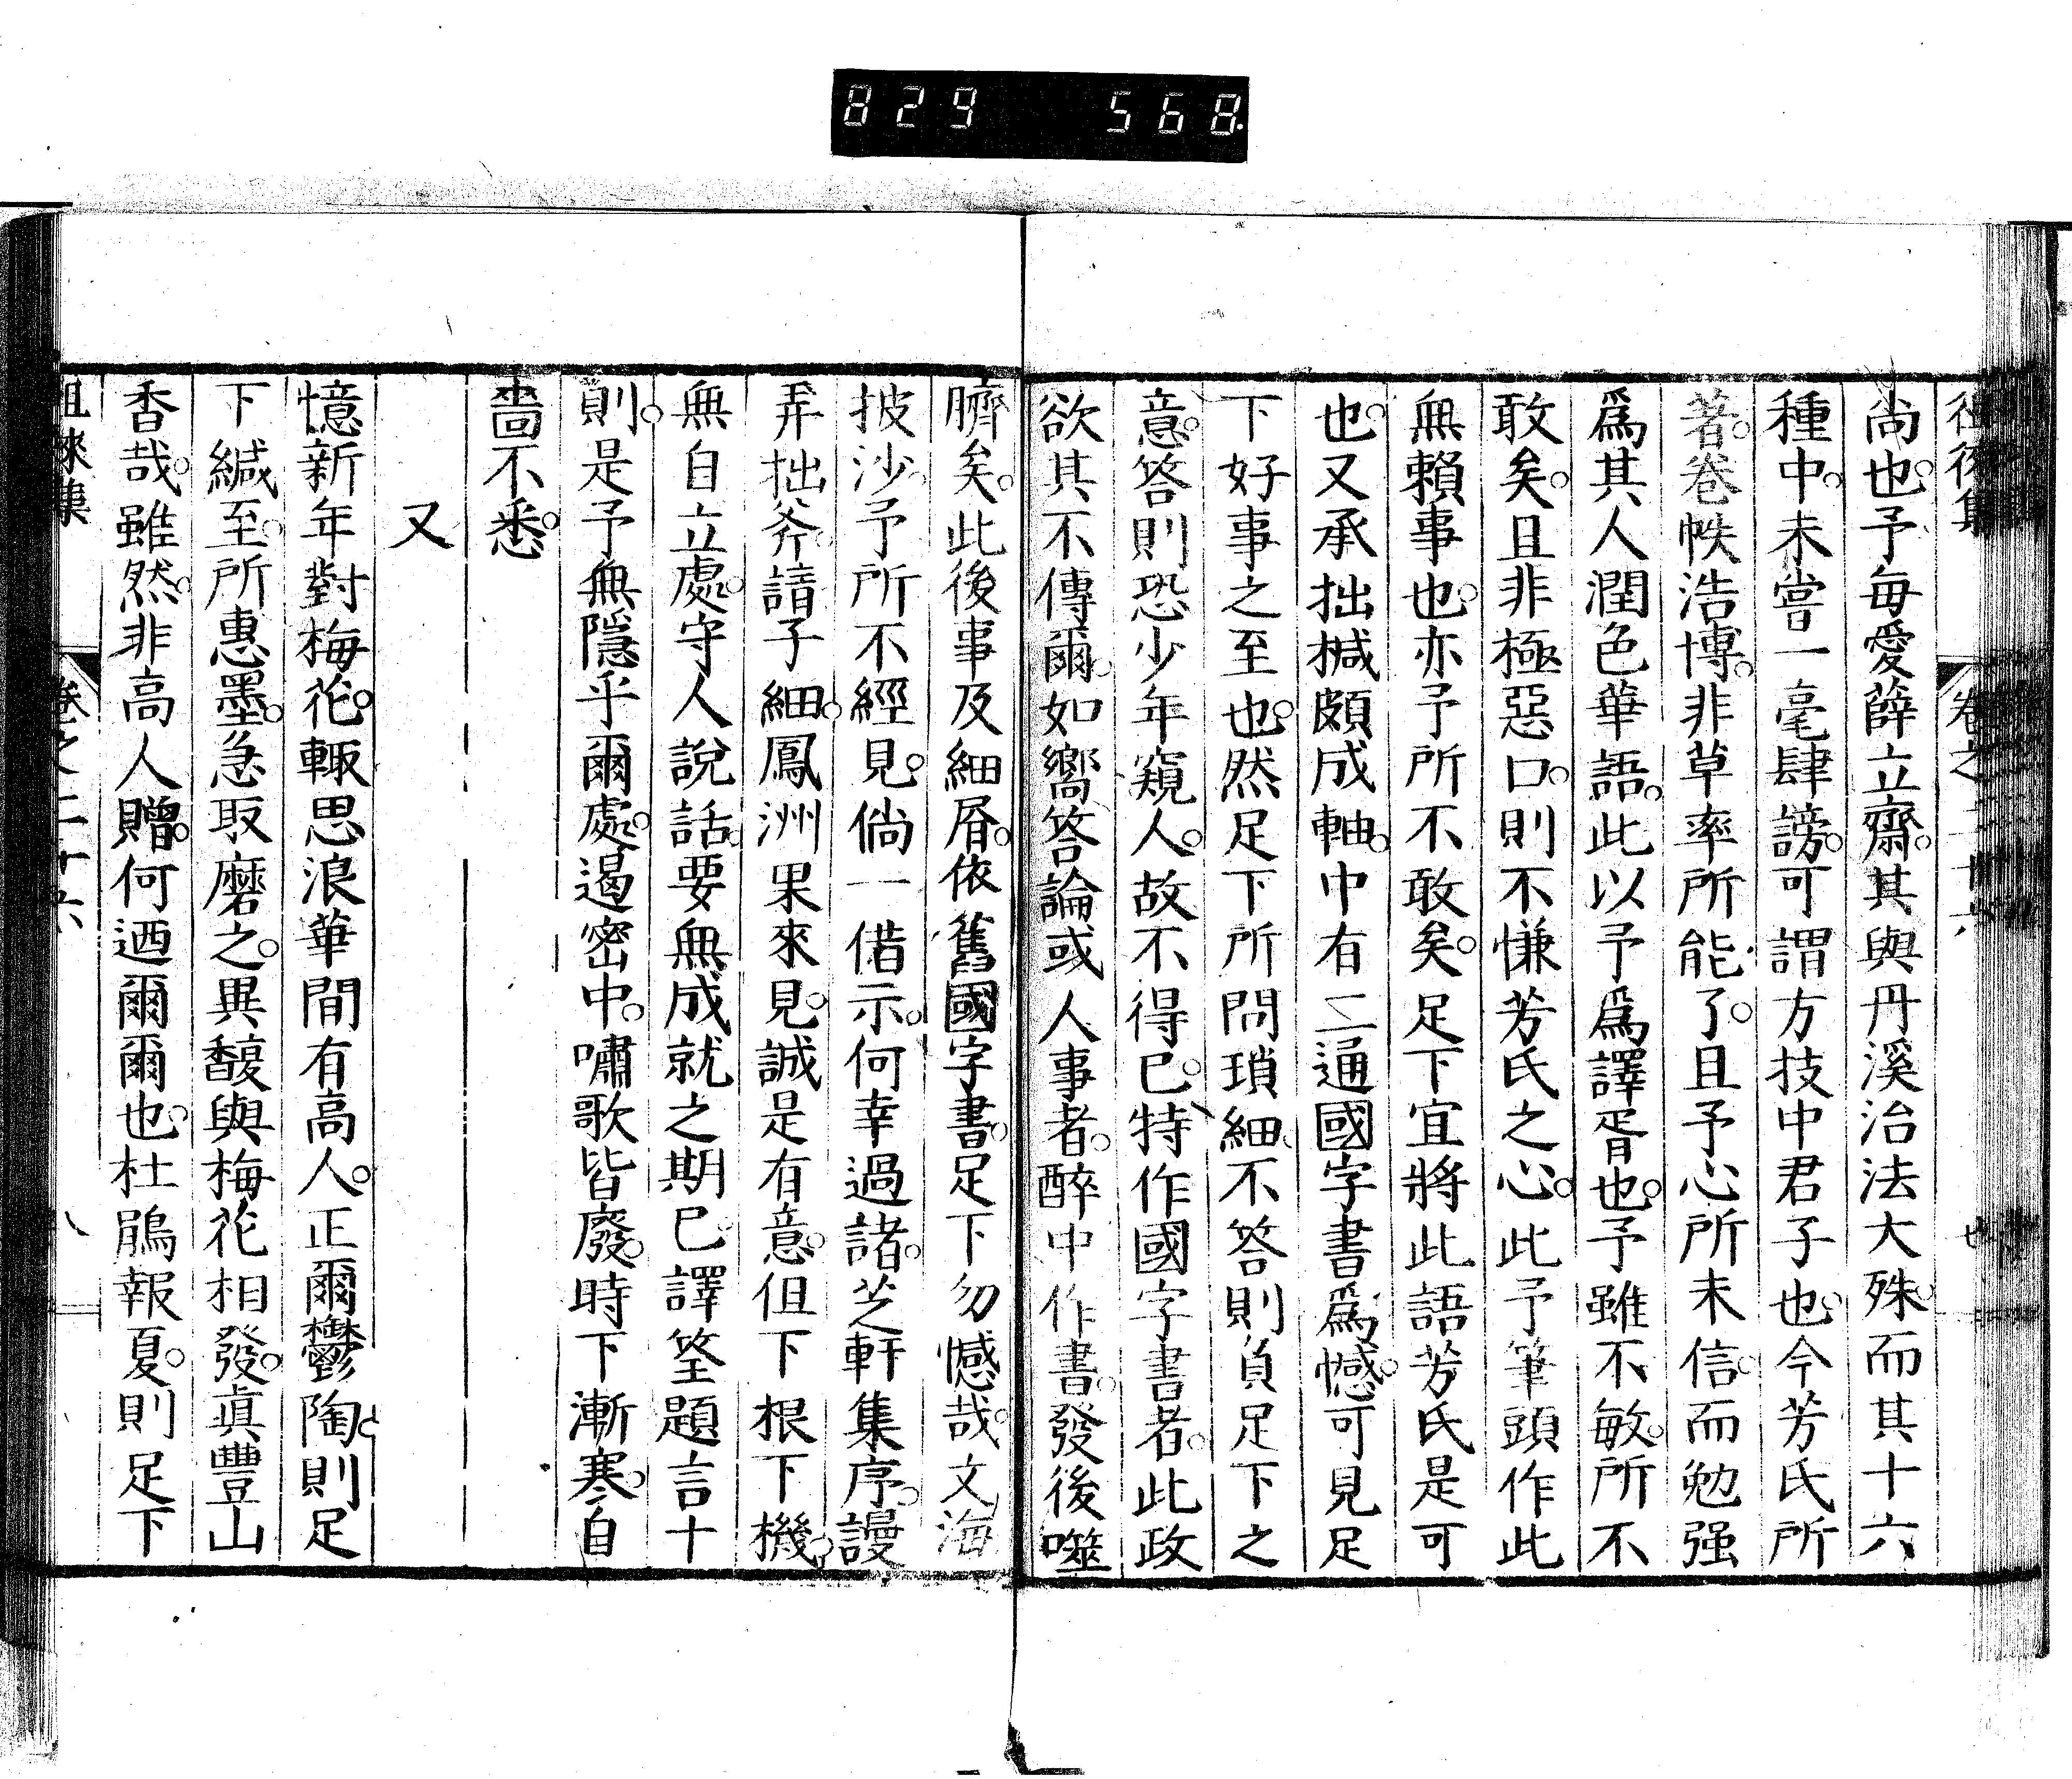 829 568
尚也。予每愛薛立齋。其與丹溪治法大殊。而其十六
種中。未嘗一毫肆謗。可謂方技中君子也。今芳氏所
著。卷帙浩博。非草率所能了。且予心所未信。而勉强
爲其人潤色華語。此以予爲譯胥也。予雖不敏。所不
敢矣。且非極惡口。則不慊芳氏之心。此予筆頭作此
無賴事也。亦予所不敢矣。足下宜將此語芳氏是可
也。又承拙椷頗成軸。中有二通國字書爲憾。可見足
下好事之至也。然足下所問瑣細。不答則負足下之
意。答則恐少年窺人。故不得已。特作國字書者。此政
欲其不傳爾。如嚮答論或人事者。醉中作書。發後噬
臍矣。此後事及細屑。依舊國字書。足下勿憾哉。文海
披沙。予所不經見。倘一借示。何幸過諸。芝軒集序。謾
弄拙斧。請子細。鳳洲果來見。誠是有意。但下根下機。
無自立處。守人說話。要無成就之期已。譯筌題言十
則。是予無隱乎爾處。遏密中。嘯歌皆廢。時下漸寒。自
嗇不悉。
又
憶新年對梅花。輙思浪華間有高人。正爾鬱陶。則足
下緘至。所惠墨。急取磨之。異馥與梅花相發。眞豐山
香哉。雖然。非高人贈。何迺爾爾也。杜鵑報夏。則足下
徂徠集 卷之二十六 八